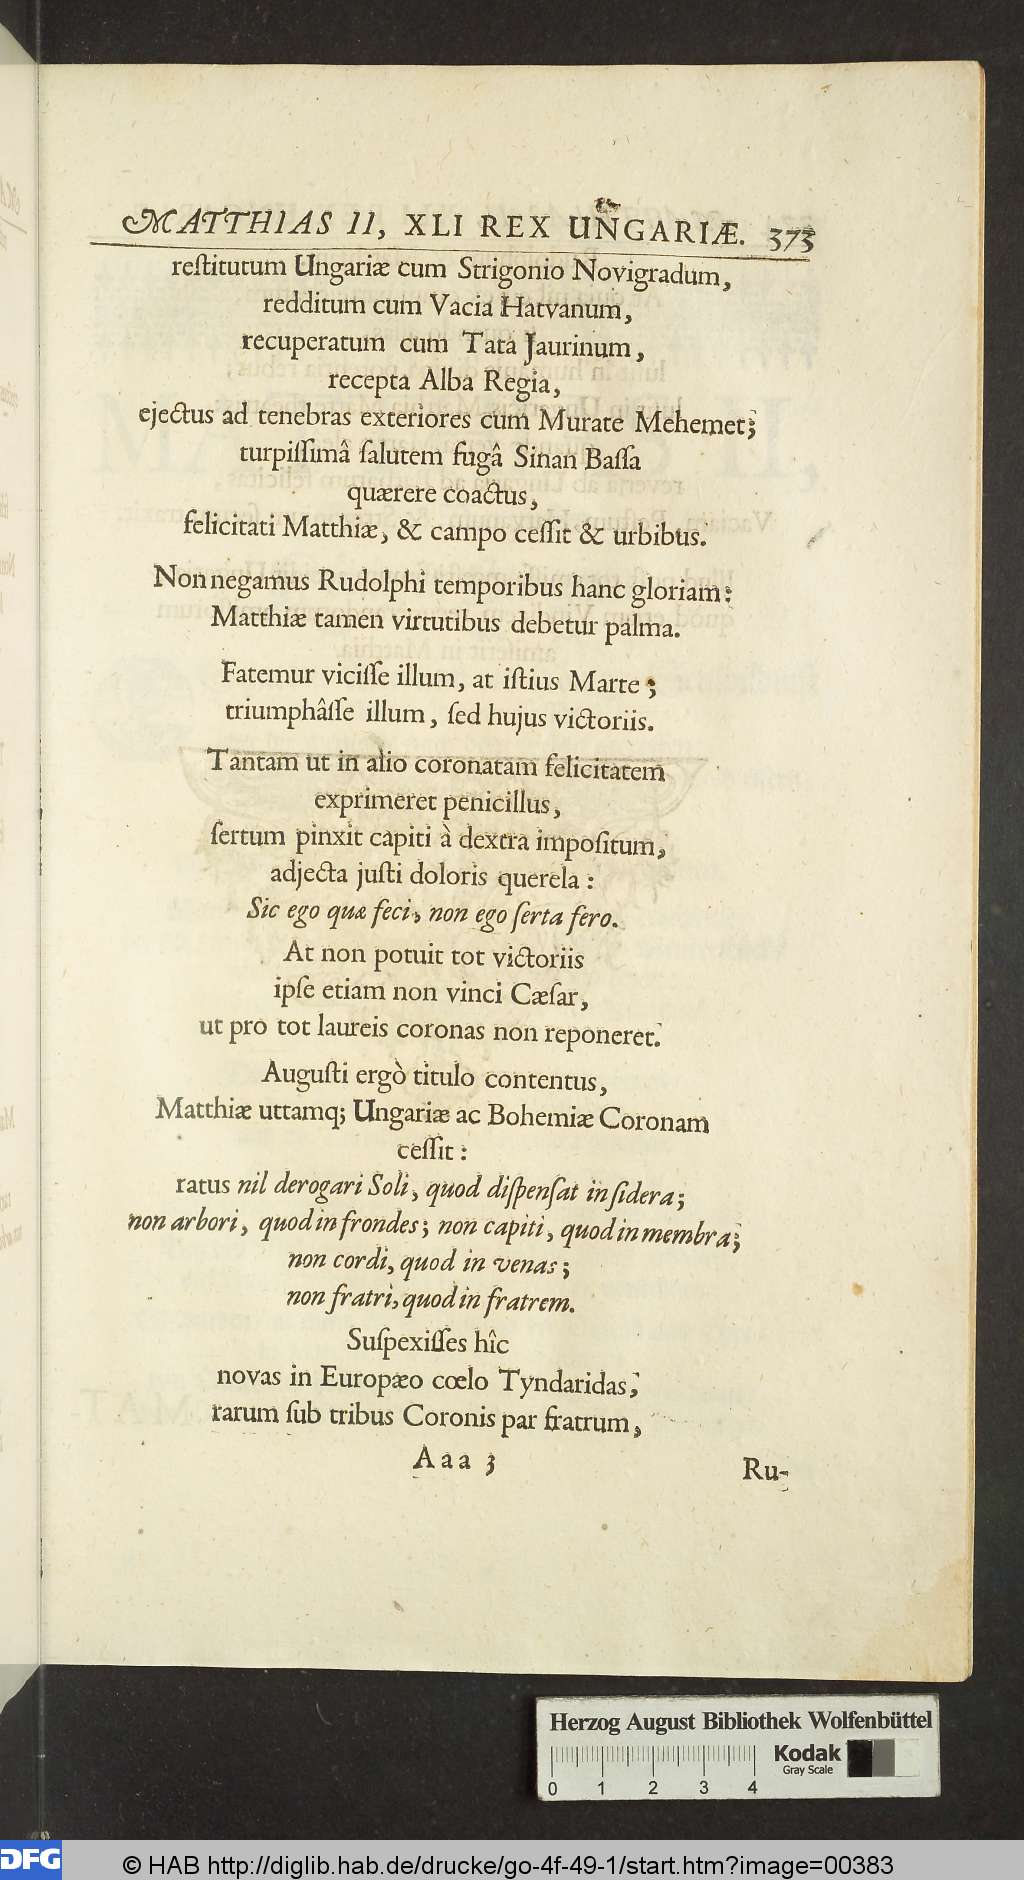 MATTHIAS II, XLI REX UNGARIÆ. 373
reſtitutum Ungariæ cum Strigonio Novigradum,
redditum cum Vacia Hatvanum,
recuperatum cum Tata Jaurinum,
recepta Alba Regia,
ejectus ad tenebras exteriores cum Murate Mehemet;
turpiſſimâ ſalutem fugâ Sinan Baſſa
quærere coactus,
felicitati Matthiæ, & campo ceſſit & urbibus.
Non negamus Rudolphi temporibus hanc gloriam:
Matthiæ tamen virtutibus debetur palma.
Fatemur viciſſe illum, at iſtius Marte;
triumphâſſe illum, ſed hujus victoriis.
Tantam ut in alio coronatam felicitatem
exprimeret penicillus,
ſertum pinxit capiti à dextra impoſitum,
adjecta juſti doloris querela:
Sic ego quæ feci, non ego ſerta fero.
At non potuit tot victoriis
ipſe etiam non vinci Cæſar,
ut pro tot laureis coronas non reponeret.
Auguſti ergò titulo contentus,
Matthiæ uttamq; Ungariæ ac Bohemiæ Coronam
ceſſit:
ratus nil derogari Soli, quod diſpenſat in ſidera;
non arbori, quod in frondes; non capiti, quod in membra;
non cordi, quod in venas;
non fratri, quod in fratrem.
Suſpexiſſes hîc
novas in Europæo cœlo Tyndaridas,
rarum ſub tribus Coronis par fratrum,
Aaa 3 Ru-
Herzog August Bibliothek Wolfenbüttel
Kodak
Gray Scale
0 1 2 3 4
DFG © HAB http://diglib.hab.de/drucke/go-4f-49-1/start.htm?image=00383